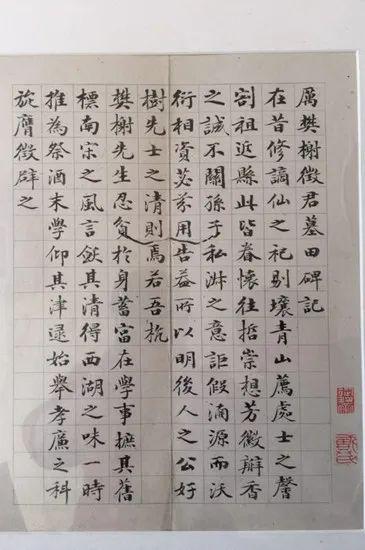 厲樊榭徵君墓田碑記
在昔修謫仙之祀剔壤青山薦處士之馨
割祖近縣此皆眷懷往哲崇想芳徽辦香
之誠不關孫子私淑之意詎假湎源而沃
衍相資苾芬用告益所以明後人之公好
樹先士之清則焉若吾杭
樊榭先生忍貧於身蓄富在學事摭其舊
標南宋之風言飲其清得西湖之味一時
推為祭酒末學仰其津逮始舉孝廉之科
旋膺徵辟之